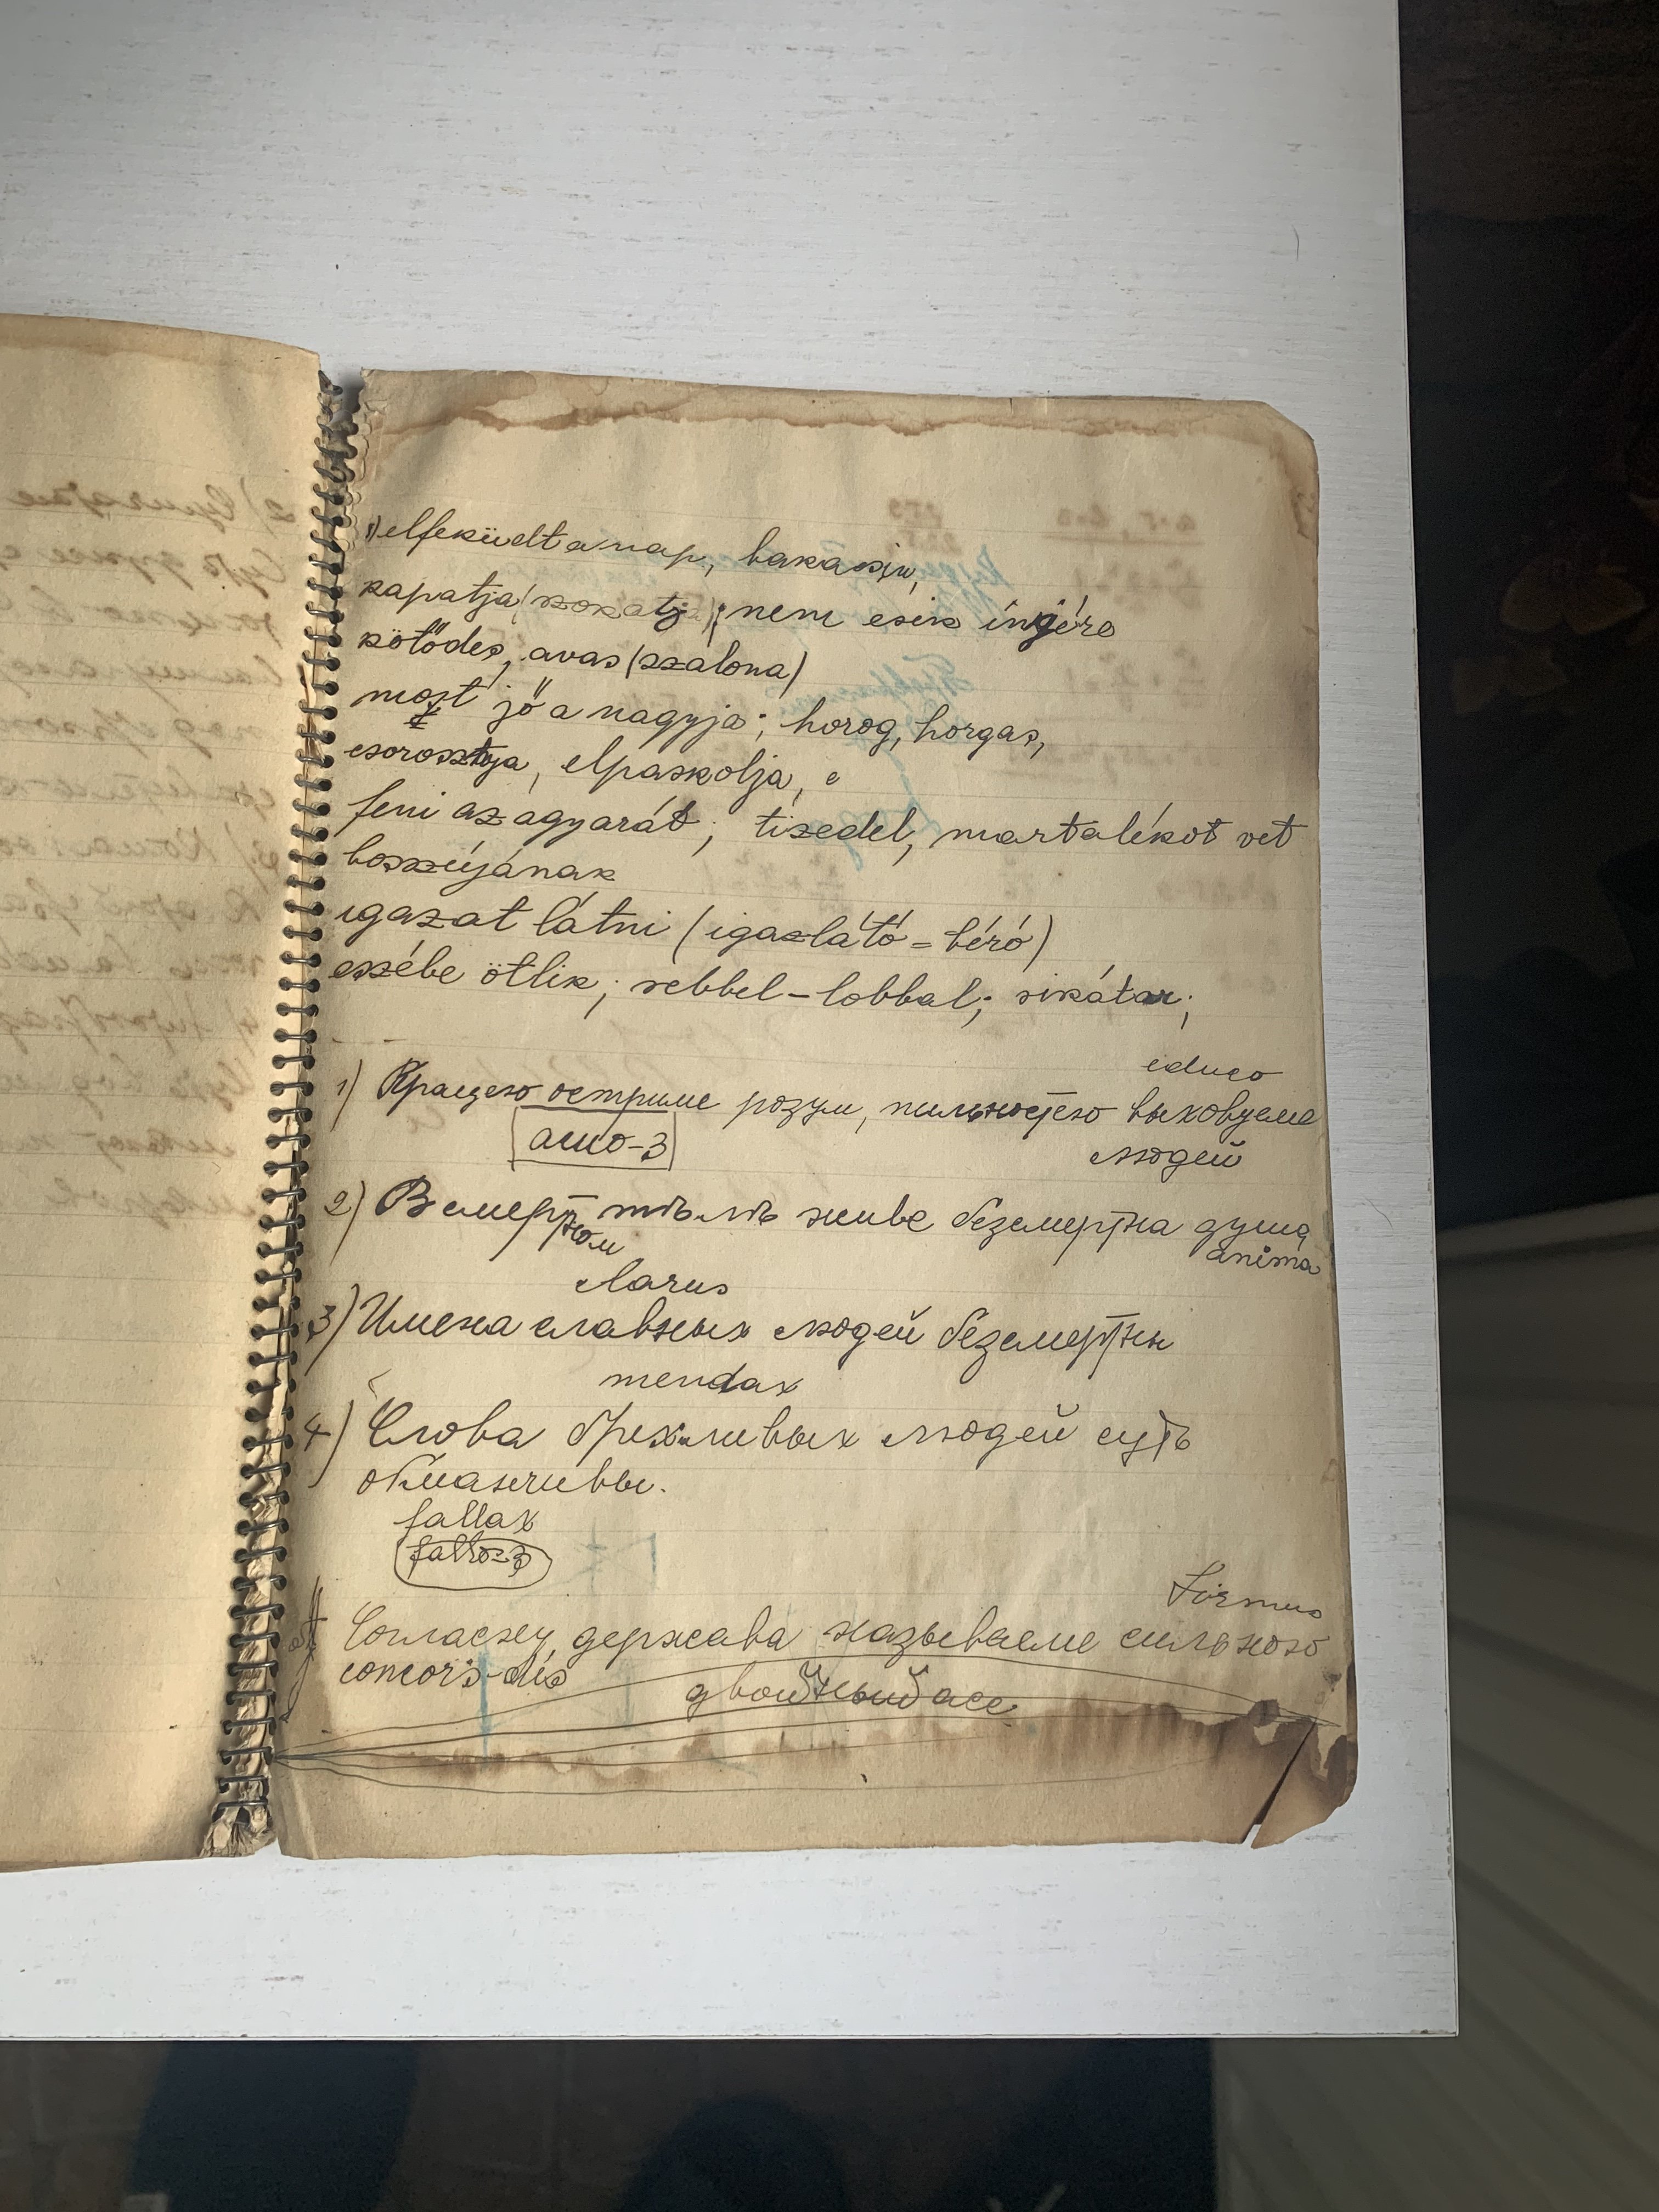 1) elfeküdt a nap, bakasin,
kapatja (szokatj ); nem esik ínyére
kötődés, avas (szalona)
most jő a nagyja; horog, horgas,
csorosztoja, elpaskolja, e
feni az agyarát; tizedel, martalékot vet
bosszújának
igazat látni (igazlátó = bíró)
eszébe ötlik; rebbel-lobbal; sikátor;
educo
1) Працею остриме розум, пильностею выховуеме
acuo-3 людей
2) В смертном тѣлѣ живе безсмертна душа
anima
clarus
3) Имена славных людей безсмертны
mendax
4) Слова брехливых людей суть
обманчивы.
fallax
fallo-3
firmus
Согласну держава называеме сильною
concors-dis
двойный acc.